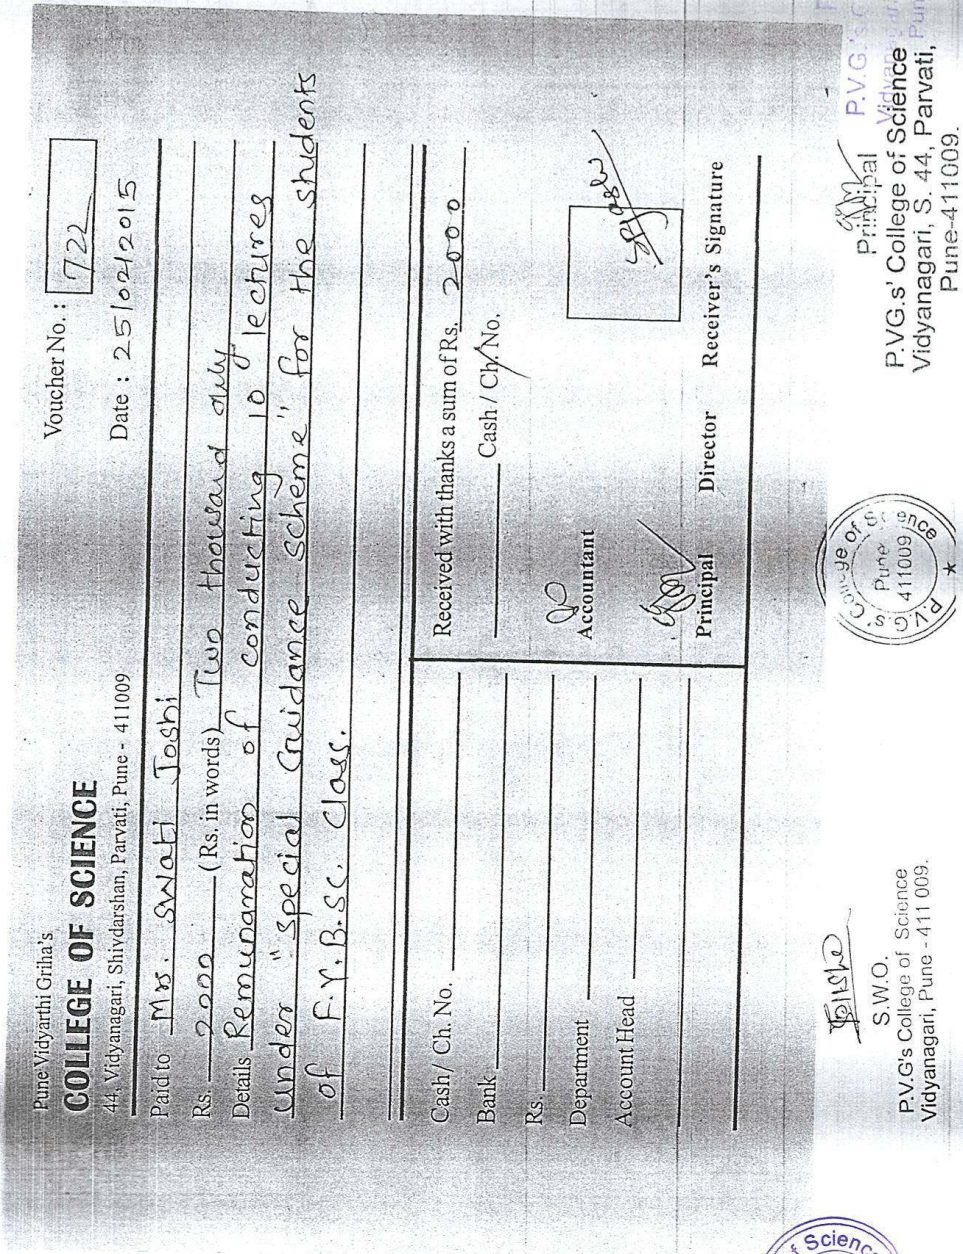 Pune Vidyarthi Griha's
COLLEGE OF SCIENCE
44, Vidyanagari, Shivdarshan, Parvati, Pune - 411009
Voucher No. : 722
Date : 25/02/2015
Paid to Mrs. Swati Joshi
Rs. 2000 (Rs. in words) Two thousand only
Details Remunaration of conducting 10 lectures
under "Special Guidance Scheme" for the students
of F.Y.B.Sc. Class.
Cash / Ch. No.
Bank
Rs.
Department
Account Head
Received with thanks a sum of Rs. 2000
Cash / Ch. No.
Accountant
Principal Director Receiver's Signature
S.W.O.
P.V.G's College of Science
Vidyanagari, Pune - 411 009.
P.V.G.s' College of Science
Pune
411009
★
Principal
P.VG.s' College of Science
Vidyanagari, S. 44, Parvati,
Pune-411009.
P.V.G.'s
f Science